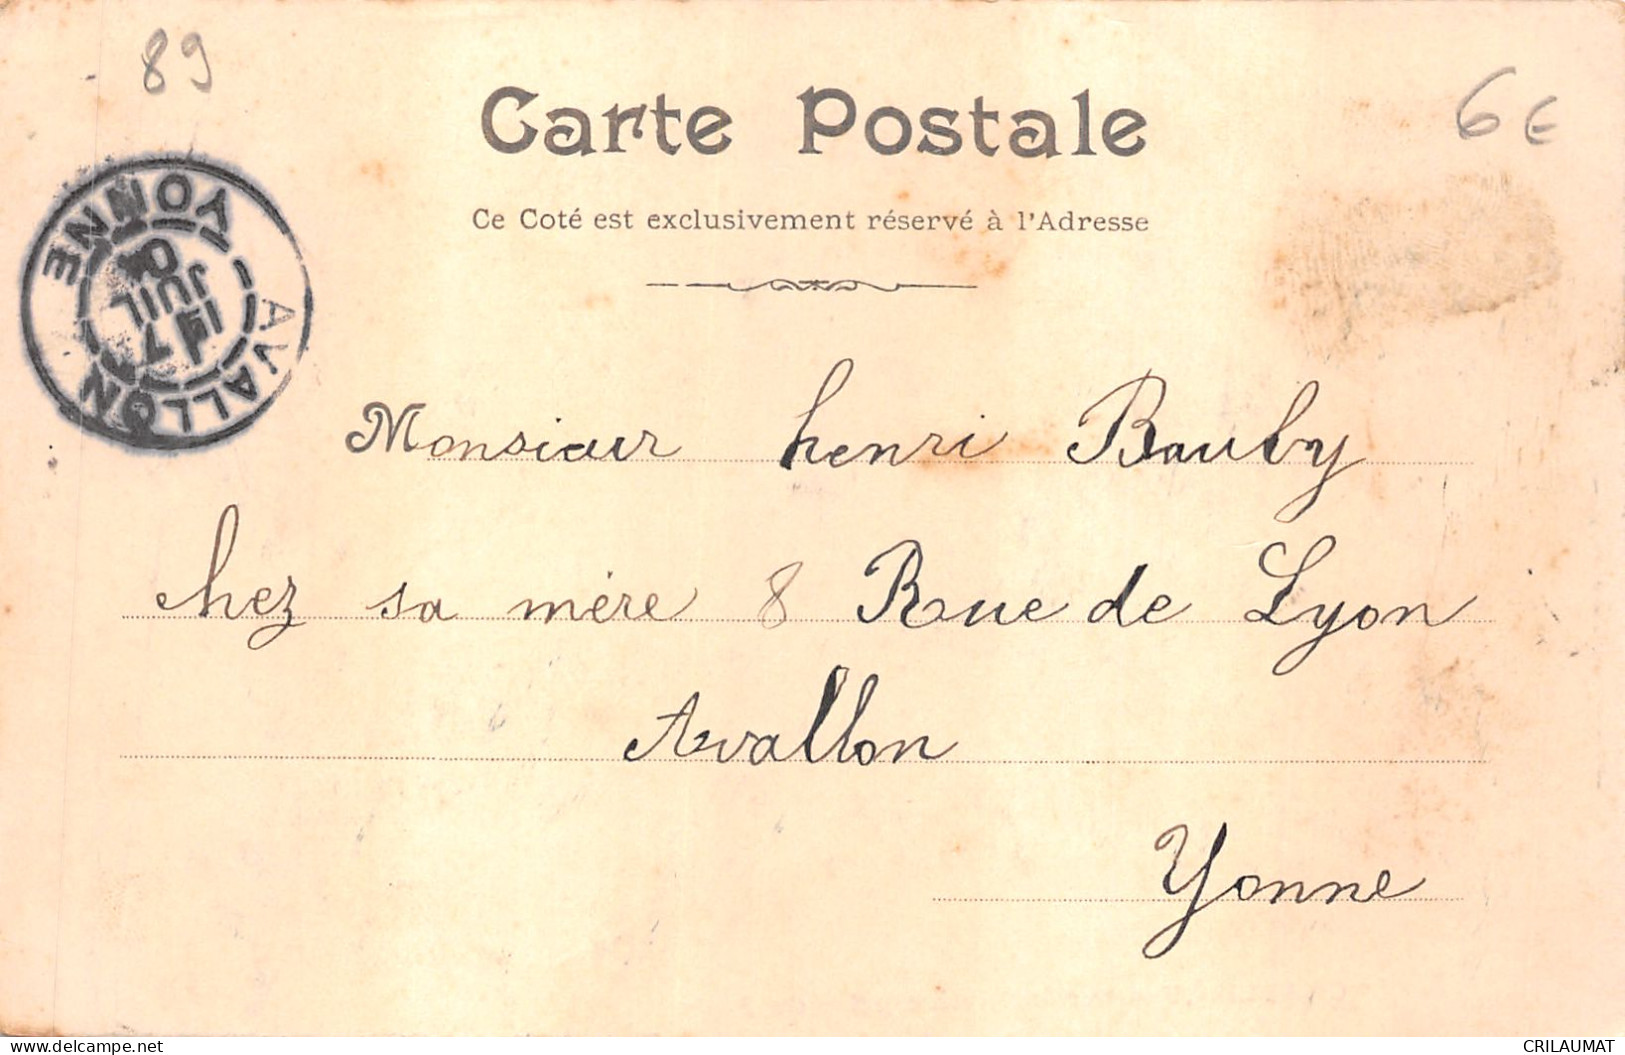 89
Carte Postale
6 €
Ce Coté est exclusivement réservé à l'Adresse
AVALLON
YONNE
JUIL
Monsieur henri Bauby
chez sa mère 8 Rue de Lyon
Avallon
Yonne
www.delcampe.net
CRILAUMAT